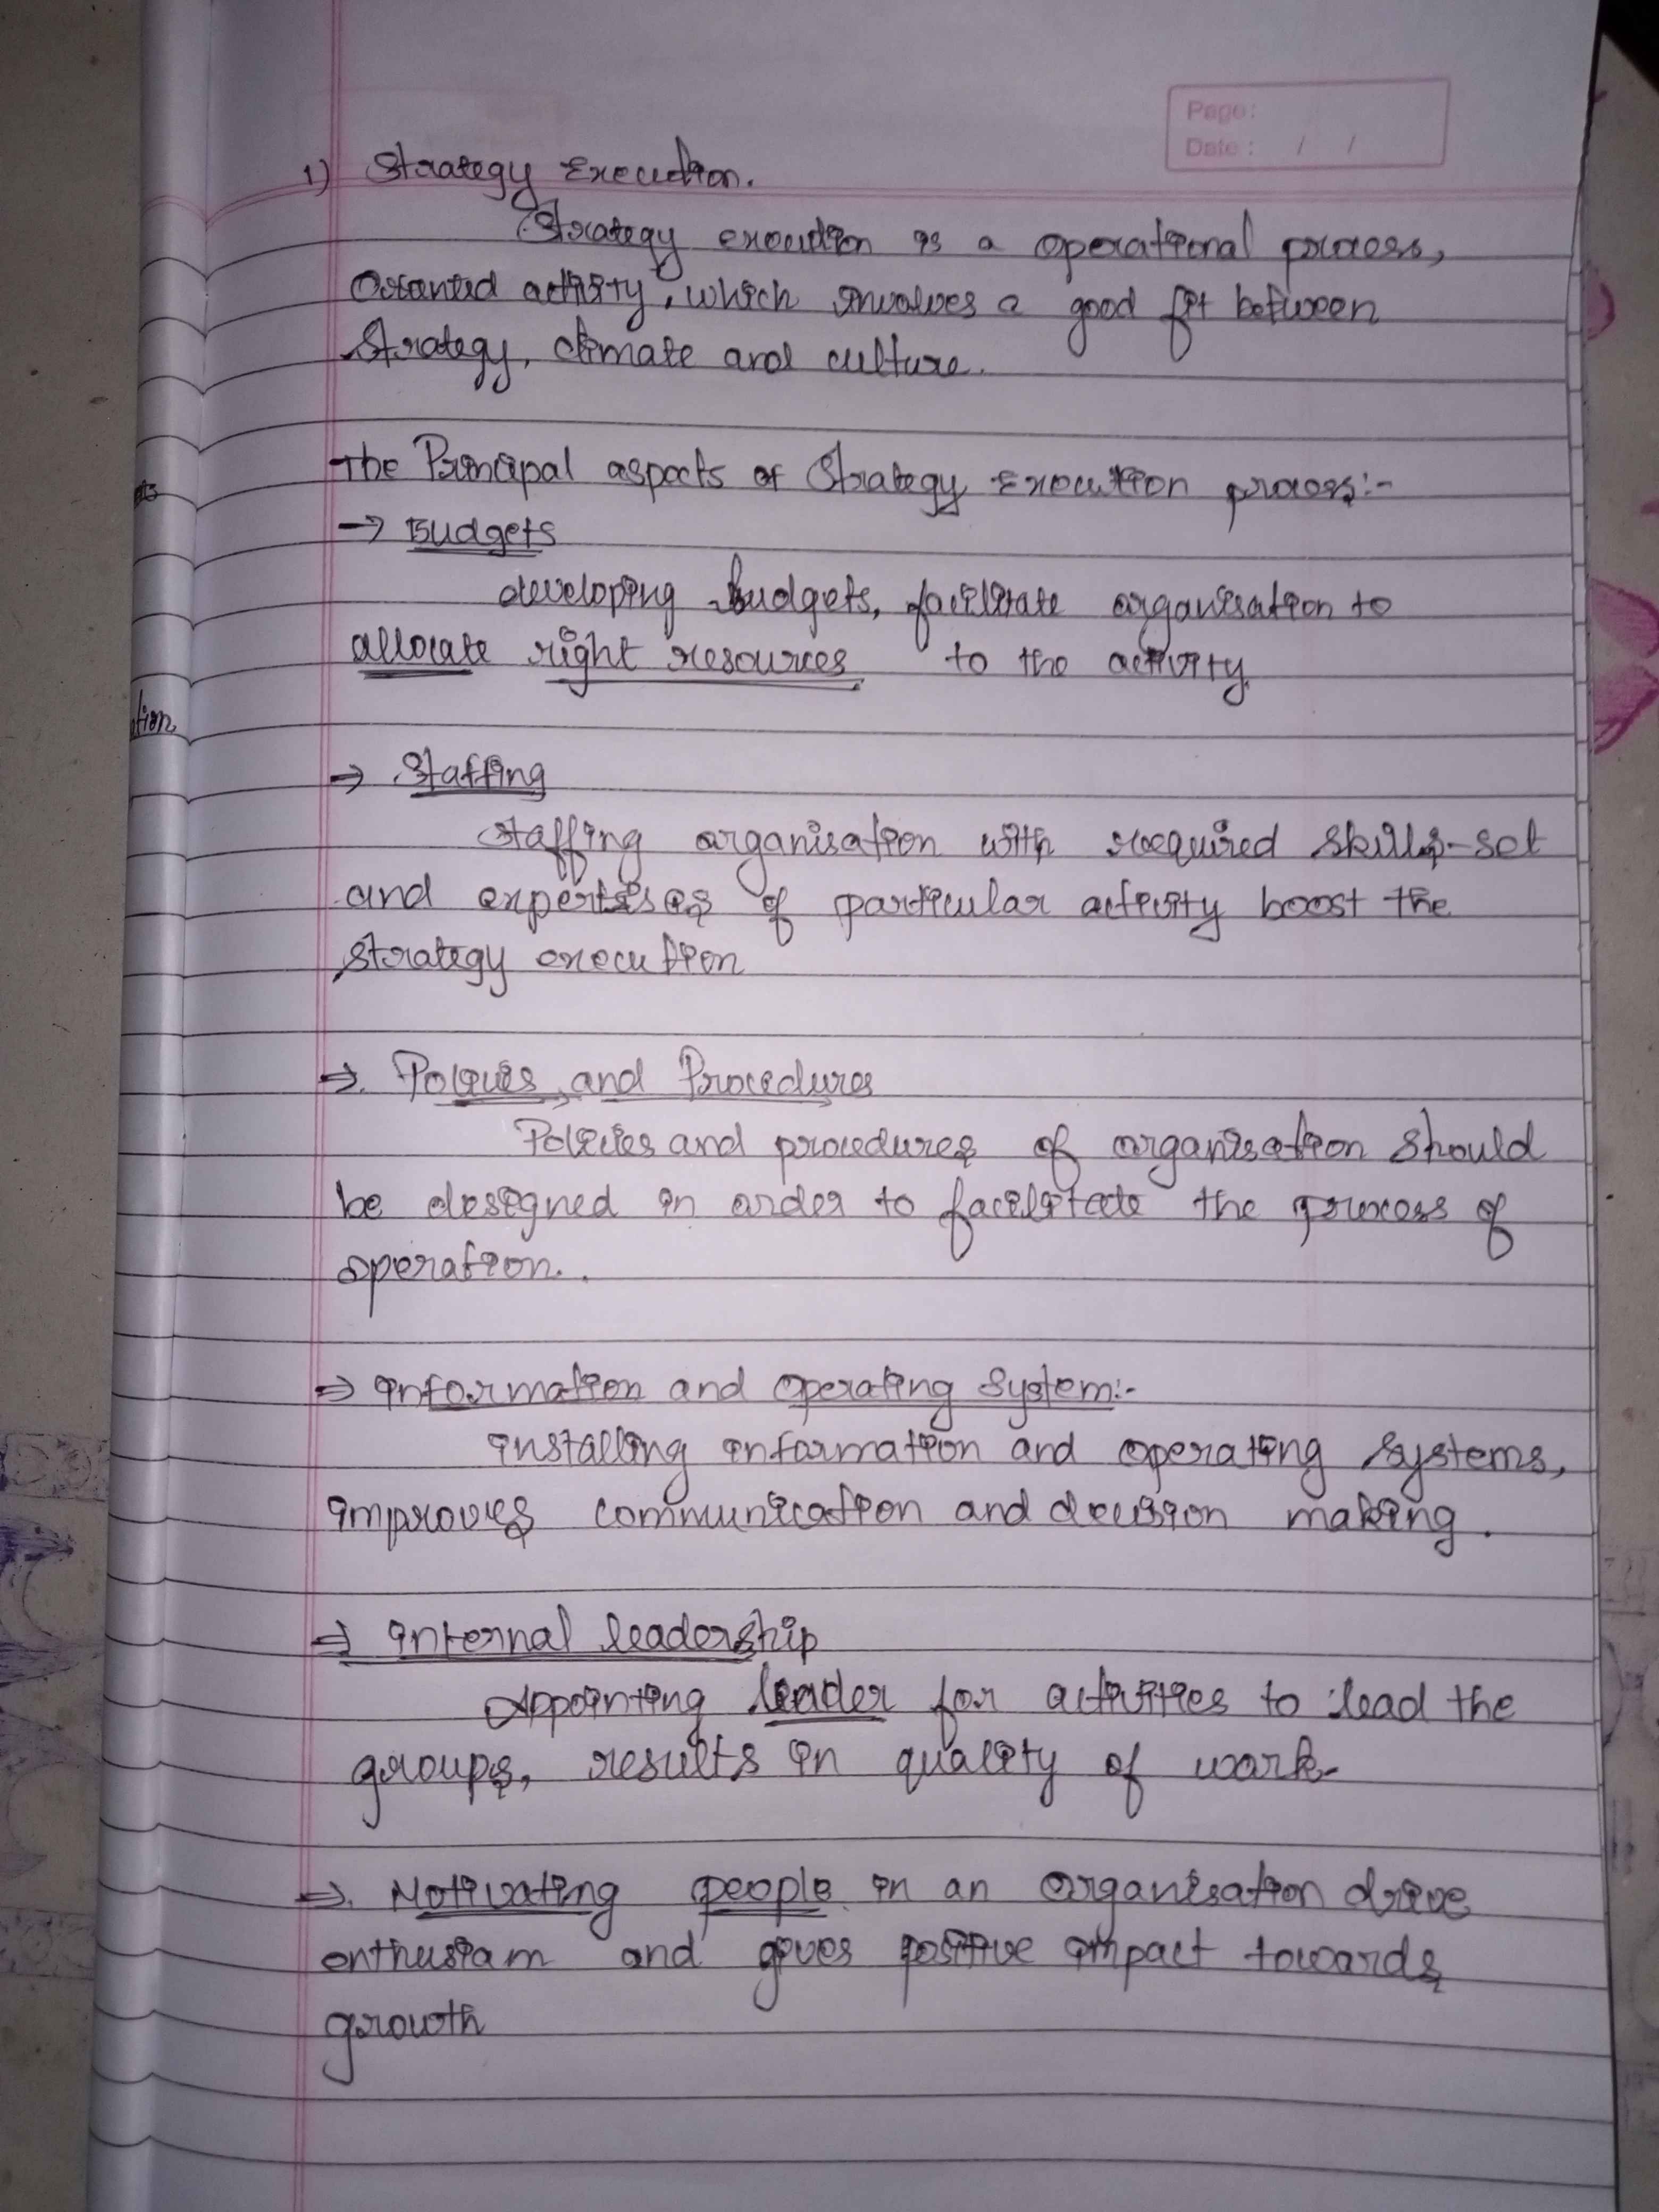 Page:
Date: / /
1) Strategy Execution.
Strategy execution is a operational process,
Orianted activity, which involves a good fit between
Strategy, climate and culture.
The Principal aspects of Strategy Execution process:-
→ Budgets
developing budgets, facilitate organisation to
allocate right resources to the activity.
⇒ Staffing
Staffing organisation with required skills-set
and expertises of particular activity boost the
strategy execution
⇒. Policies and Procedures
Policies and procedures of organisation should
be designed in order to facilitate the process of
operation.
⇒ information and operating system:-
installing information and operating systems,
improves communication and decision making.
⇒ internal leadership
Appointing leader for activities to lead the
groups, results in quality of work.
⇒. Motivating people in an organisation drive
enthusiam and gives positive impact towards
growth
tion